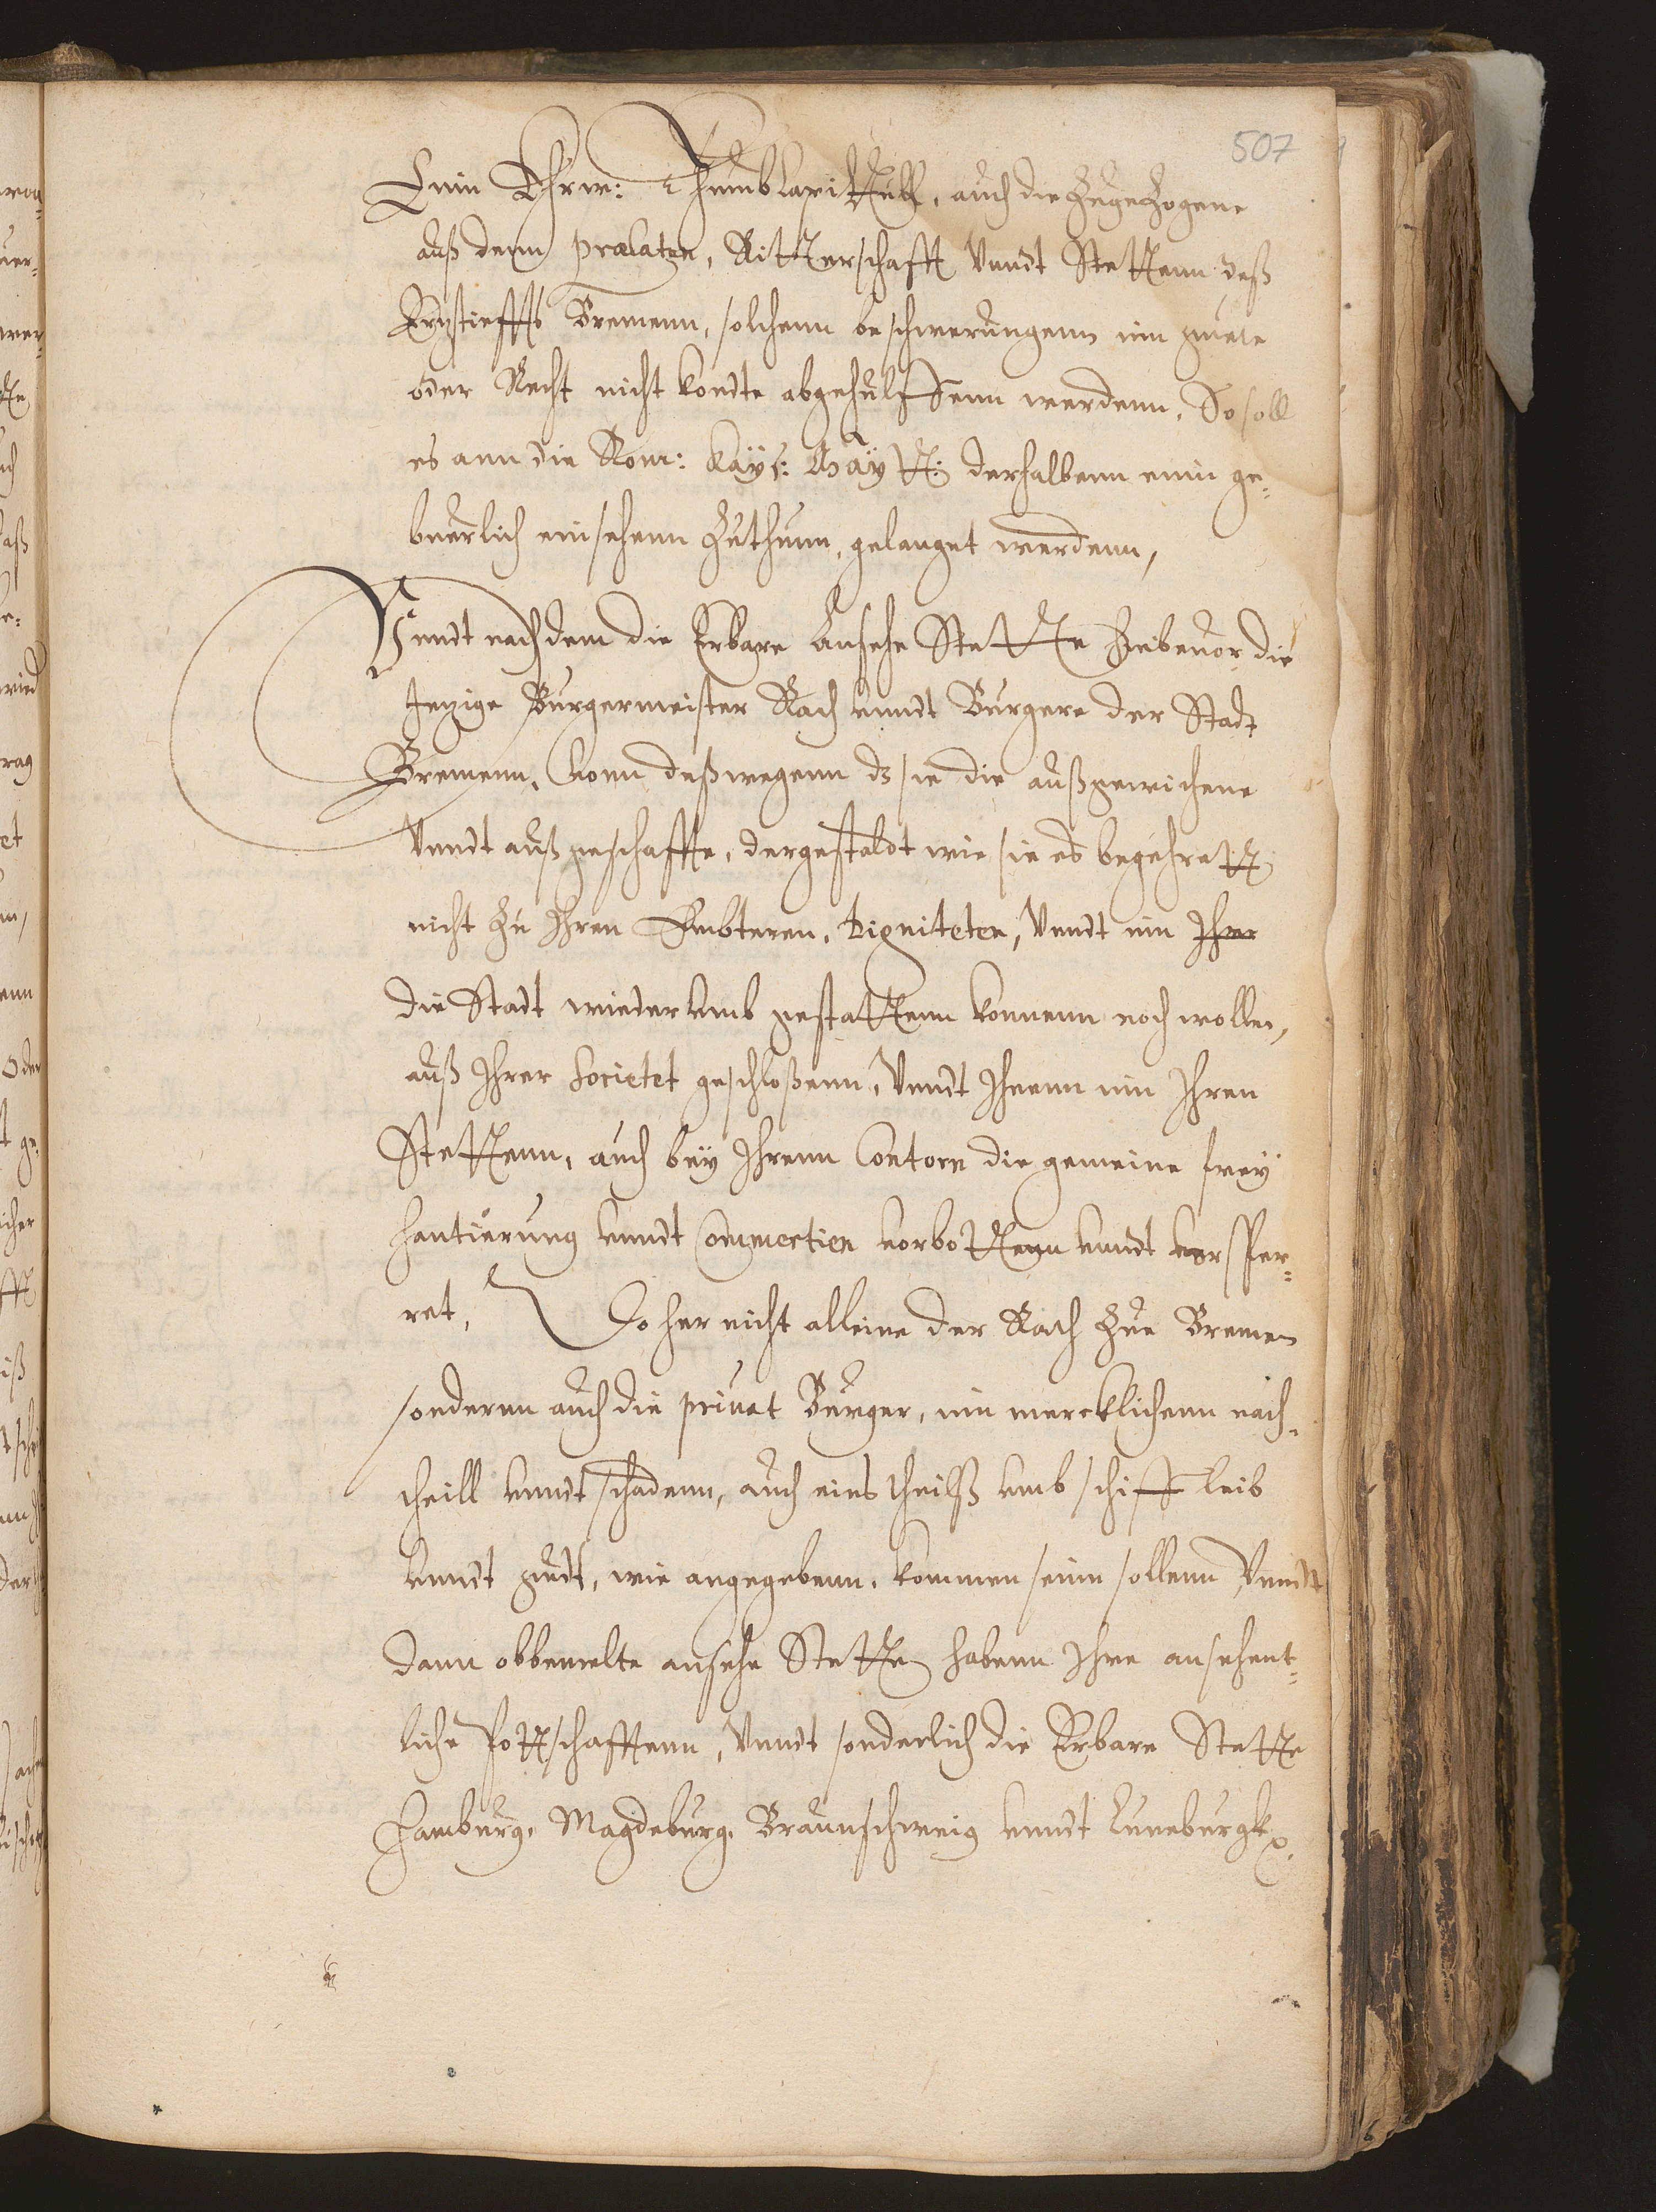 507
Einn Ehrw: Thumb Capittull, auch die Zugezogene
auß denn praelaten, Ritterschafft Vnndt Stettenn deß
Ertzstieffts Bremenn, solchenn beschwerungenn inn guete
oder Recht nicht kondte abgehulffenn werdenn, So soll
es ann die Rom: Kaÿs: Maÿtt: derhalbenn einn ge¬
buerlich einsehenn Zuthunn, gelanget werdenn,
Vnndt nachdem die Erbare Ansehe Stette hiebeuor die
Jenige Burgermeister Rath vnndt Burgere der Stadt
Bremenn, Vonn deßwegenn ds sie die außgewichene
Vnndt außgeschaffte, dergestaldt wie sie es begehrett
nicht Zu Ihren Embteren, digniteten, Vnndt inn Ihre
die Stadt wiederumb gestattenn konnenn noch wollen,
auß Ihrer Societet geschloßenn, Vnndt Ihnenn inn Ihren
Stettenn, auch beÿ Ihrenn Contorn die gemeine freÿ
hantierung vnndt Commertien verbottenn vnndt versper¬
ret, Do her nicht alleine der Rath Zue Bremen
sonderen auch die priuat Burger, inn mercklichenn nach¬
theill vnndt schadenn, auch eines theilß vmb schiff leib
vnndt gudt, wie angegebenn, kommen seinn sollenn, Vnndt
dann obbemelte ansehe Stette habenn Ihre ansehent¬
liche Pottschafftenn, Vnndt sonderlich die Erbare Stette
Hamburg, Magdeburg, Braunschweig vnndt Luneburgk